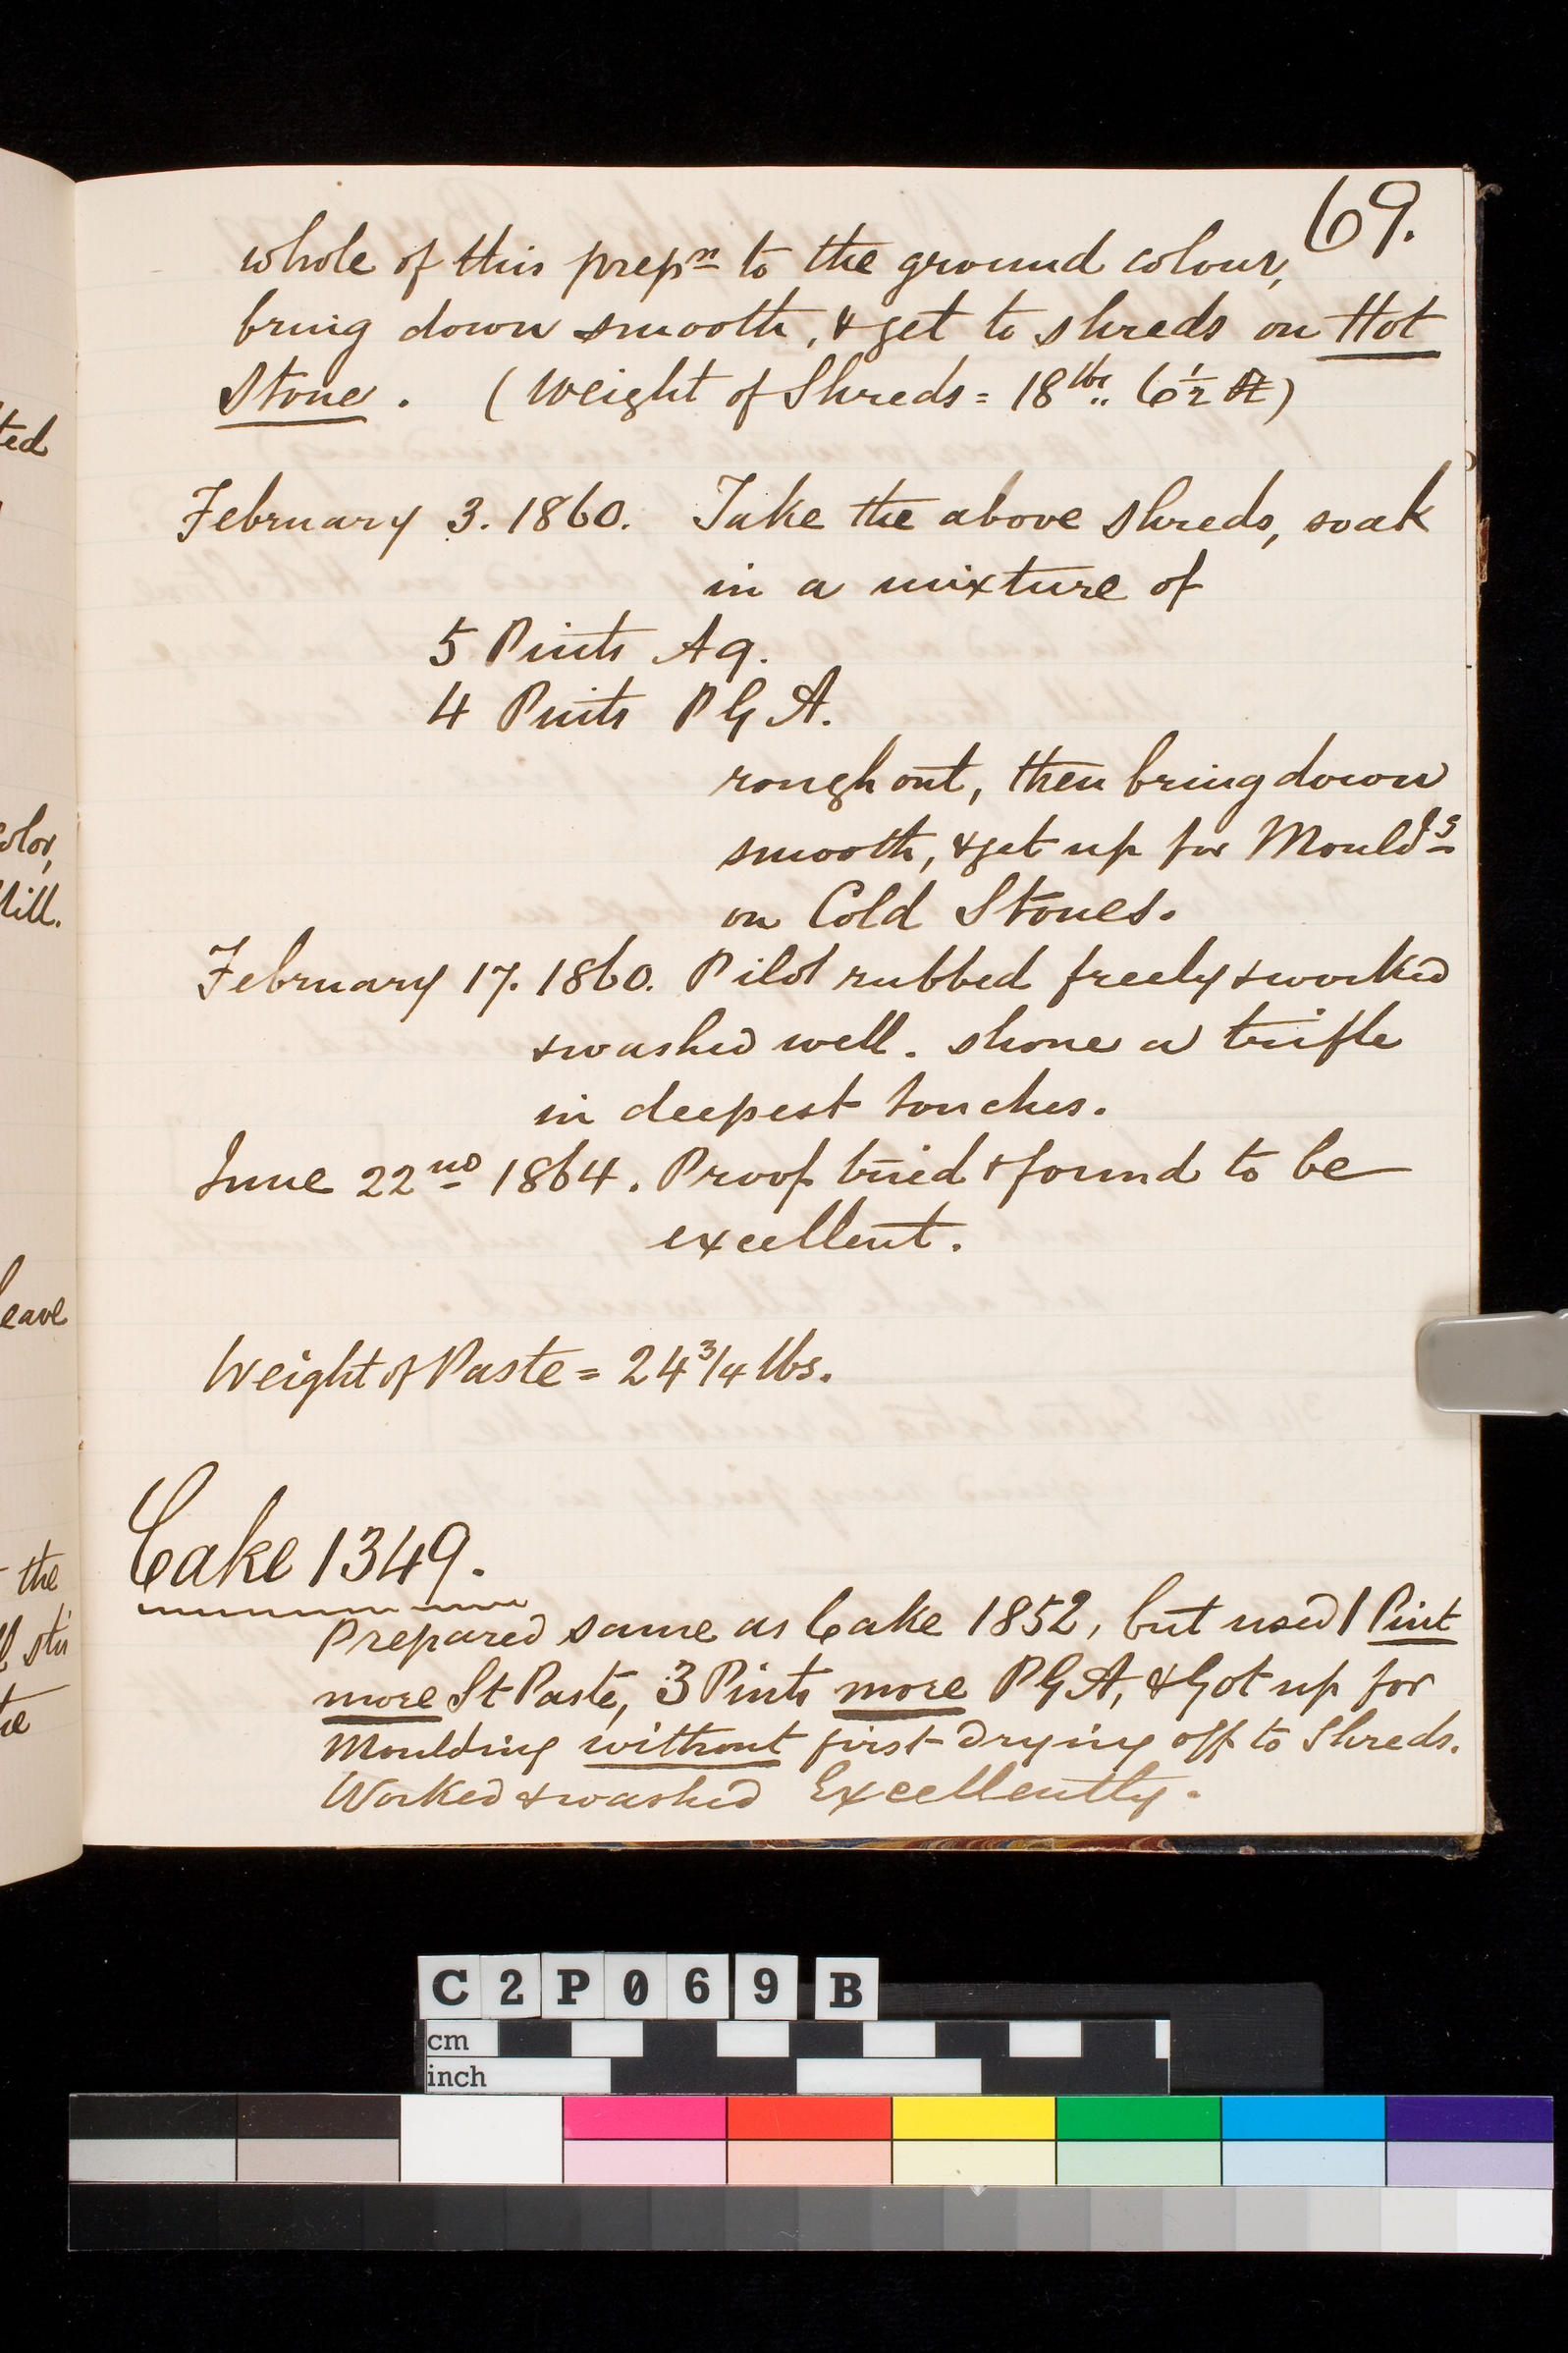 69.
whole of this prepn to the ground colour,
bring down smooth, & get to shreds on Hot
Stone. (Weight of Shreds = 18 lbs.. 6½ )
February 3. 1860. Take the above Shreds, soak
in a mixture of
5 Pints Aq.
4 Pints P G A.
rough out, then bring down
smooth, & get up for Mould'g
on Cold Stones.
February 17. 1860. Pilot rubbed freely & worked
& washed well. shone a trifle
in deepest touches.
June 22nd 1864. Proof tried & found to be
excellent.
Weight of Paste = 24 3/4 lbs.
Cake 1349.
Prepared same as Cake 1852, but used 1 Pint
more St Paste, 3 Pints more P G A, & Got up for
Moulding without first drying off to Shreds.
Worked & washed Excellently.
ted
olor,
ill.
eave
the
sti
C2P069 B
cm
inch